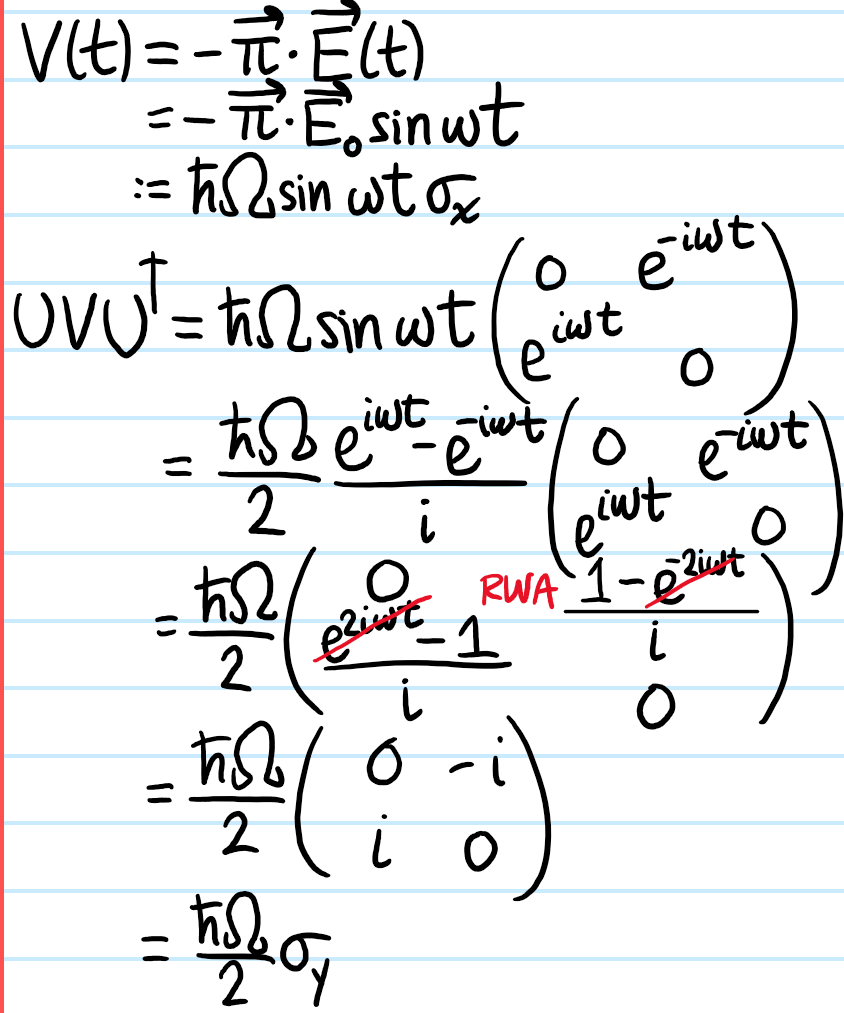 V(t) = -π⃗·E⃗(t)
= -π⃗·E⃗₀ sin ωt
:= ħΩ sin ωt σₓ
UVU† = ħΩ sin ωt ( 0 e^{-iωt} ; e^{iωt} 0 )
= ħΩ/2 (e^{iωt} - e^{-iωt})/i ( 0 e^{-iωt} ; e^{iωt} 0 )
= ħΩ/2 ( 0 RWA (1 - e^{-2iωt})/i ; (e^{2iωt} - 1)/i 0 )
= ħΩ/2 ( 0 -i ; i 0 )
= ħΩ/2 σ_y